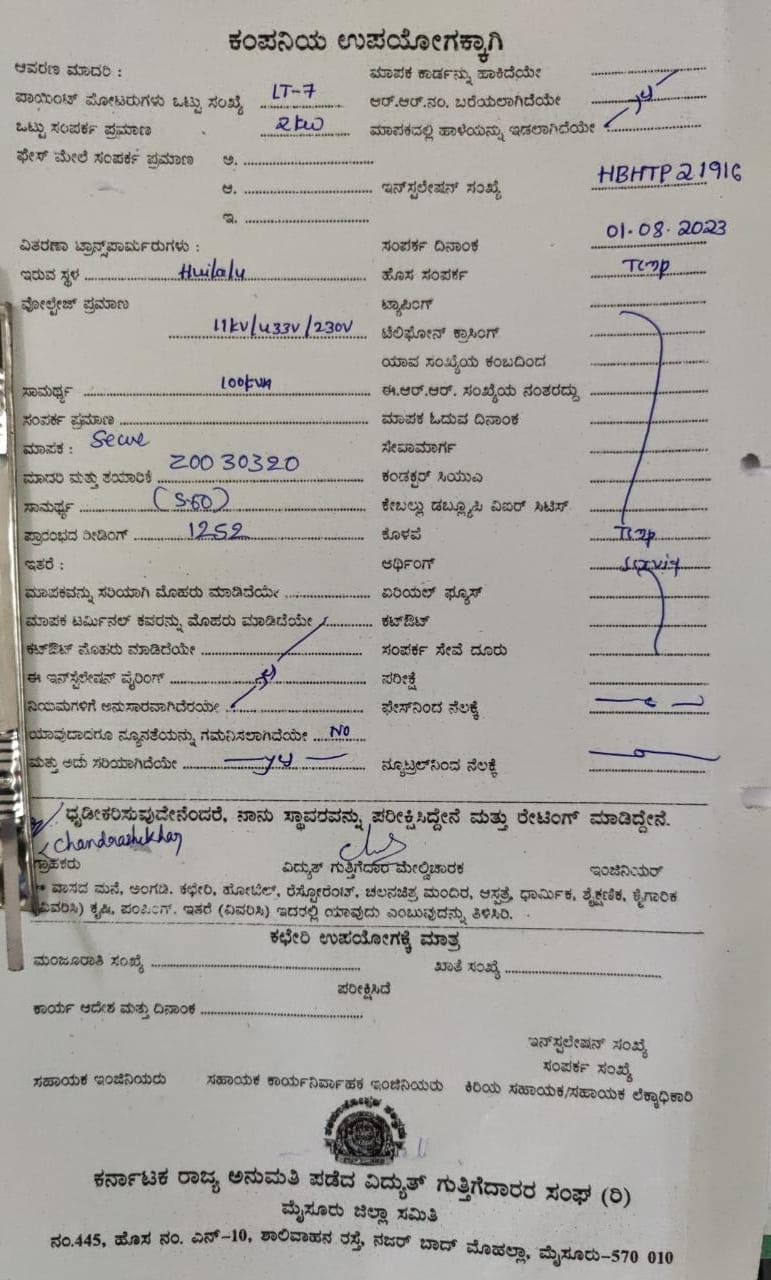 ಕಂಪನಿಯ ಉಪಯೋಗಕ್ಕಾಗಿ
ಆವರಣ ಮಾದರಿ : ಮಾಪಕ ಕಾರ್ಡನ್ನು ಹಾಕಿದೆಯೇ
ಪಾಯಿಂಟ್ ಮೋಟರುಗಳು ಒಟ್ಟು ಸಂಖ್ಯೆ LT-7 ಆರ್.ಆರ್.ನಂ. ಬರೆಯಲಾಗಿದೆಯೇ
ಒಟ್ಟು ಸಂಪರ್ಕ ಪ್ರಮಾಣ 2kw ಮಾಪಕದಲ್ಲಿ ಹಾಳೆಯನ್ನು ಇಡಲಾಗಿದೆಯೇ
ಫೇಸ್ ಮೇಲೆ ಸಂಪರ್ಕ ಪ್ರಮಾಣ ಅ.
ಆ. ಇನ್‌ಸ್ಟಲೇಷನ್ ಸಂಖ್ಯೆ HBHTP21916
ಇ.
ವಿತರಣಾ ಟ್ರಾನ್ಸ್‌ಪಾರ್ಮರುಗಳು : ಸಂಪರ್ಕ ದಿನಾಂಕ 01.08.2023
ಇರುವ ಸ್ಥಳ Huilalu ಹೊಸ ಸಂಪರ್ಕ
ವೋಲ್ಟೇಜ್ ಪ್ರಮಾಣ ಟ್ಯಾಪಿಂಗ್
11kv/433v/230v ಟೆಲಿಫೋನ್ ಕ್ರಾಸಿಂಗ್
ಯಾವ ಸಂಖ್ಯೆಯ ಕಂಬದಿಂದ
ಸಾಮರ್ಥ್ಯ 100kva ಈ.ಆರ್.ಆರ್. ಸಂಖ್ಯೆಯ ನಂತರದ್ದು
ಸಂಪರ್ಕ ಪ್ರಮಾಣ ಮಾಪಕ ಓದುವ ದಿನಾಂಕ
ಮಾಪಕ : Secure ಸೇವಾಮಾರ್ಗ
ಮಾದರಿ ಮತ್ತು ತಯಾರಿಕೆ Z0030320 ಕಂಡಕ್ಟರ್ ಸಿಯುಎ
ಸಾಮರ್ಥ್ಯ (5-60) ಕೇಬಲ್ಲು ಡಬ್ಲ್ಯೂಪಿ ವಿಐರ್ ಸಿಟಿಸ್
ಪ್ರಾರಂಭದ ರೀಡಿಂಗ್ 1252 ಕೊಳವೆ
ಇತರೆ : ಆರ್ಥಿಂಗ್
ಮಾಪಕವನ್ನು ಸರಿಯಾಗಿ ಮೊಹರು ಮಾಡಿದೆಯೇ ಏರಿಯಲ್ ಫ್ಯೂಸ್
ಮಾಪಕ ಟರ್ಮಿನಲ್ ಕವರನ್ನು ಮೊಹರು ಮಾಡಿದೆಯೇ ಕಟ್‌ಔಟ್
ಕಟ್‌ಔಟ್ ಮೊಹರು ಮಾಡಿದೆಯೇ ಸಂಪರ್ಕ ಸೇವೆ ದೂರು
ಈ ಇನ್‌ಸ್ಟಲೇಷನ್ ವೈರಿಂಗ್ ಪರೀಕ್ಷೆ
ನಿಯಮಗಳಿಗೆ ಅನುಸಾರವಾಗಿದೆರಯೇ ಫೇಸ್‌ನಿಂದ ನೆಲಕ್ಕೆ
ಯಾವುದಾದರೂ ನ್ಯೂನತೆಯನ್ನು ಗಮನಿಸಲಾಗಿದೆಯೇ NO
ಮತ್ತು ಅದು ಸರಿಯಾಗಿದೆಯೇ ನ್ಯೂಟ್ರಲ್‌ನಿಂದ ನೆಲಕ್ಕೆ
ಧೃಡೀಕರಿಸುವುದೇನೆಂದರೆ, ನಾನು ಸ್ಥಾವರವನ್ನು ಪರೀಕ್ಷಿಸಿದ್ದೇನೆ ಮತ್ತು ರೇಟಿಂಗ್ ಮಾಡಿದ್ದೇನೆ.
Chandrashekhar
ಗ್ರಾಹಕರು ವಿದ್ಯುತ್ ಗುತ್ತಿಗೆದಾರ ಮೇಲ್ವಿಚಾರಕ ಇಂಜಿನಿಯರ್
* ವಾಸದ ಮನೆ, ಅಂಗಡಿ. ಕಛೇರಿ, ಹೋಟೆಲ್, ರೆಸ್ಟೋರೆಂಟ್, ಚಲನಚಿತ್ರ ಮಂದಿರ, ಆಸ್ಪತ್ರೆ, ಧಾರ್ಮಿಕ, ಶೈಕ್ಷಣಿಕ, ಕೈಗಾರಿಕ
(ವಿವರಿಸಿ) ಕೃಷಿ, ಪಂಪಿಂಗ್. ಇತರೆ (ವಿವರಿಸಿ) ಇದರಲ್ಲಿ ಯಾವುದು ಎಂಬುವುದನ್ನು ತಿಳಿಸಿರಿ.
ಕಛೇರಿ ಉಪಯೋಗಕ್ಕೆ ಮಾತ್ರ
ಮಂಜೂರಾತಿ ಸಂಖ್ಯೆ ಖಾತೆ ಸಂಖ್ಯೆ
ಪರೀಕ್ಷಿಸಿದೆ
ಕಾರ್ಯ ಆದೇಶ ಮತ್ತು ದಿನಾಂಕ
ಇನ್‌ಸ್ಟಲೇಷನ್ ಸಂಖ್ಯೆ
ಸಂಪರ್ಕ ಸಂಖ್ಯೆ
ಸಹಾಯಕ ಇಂಜಿನಿಯರು ಸಹಾಯಕ ಕಾರ್ಯನಿರ್ವಾಹಕ ಇಂಜಿನಿಯರು ಕಿರಿಯ ಸಹಾಯಕ/ಸಹಾಯಕ ಲೆಕ್ಕಾಧಿಕಾರಿ
ಕರ್ನಾಟಕ ರಾಜ್ಯ ಅನುಮತಿ ಪಡೆದ ವಿದ್ಯುತ್ ಗುತ್ತಿಗೆದಾರರ ಸಂಘ (ರಿ)
ಮೈಸೂರು ಜಿಲ್ಲಾ ಸಮಿತಿ
ನಂ.445, ಹೊಸ ನಂ. ಎನ್-10, ಶಾಲಿವಾಹನ ರಸ್ತೆ, ನಜರ್ ಬಾದ್ ಮೊಹಲ್ಲಾ, ಮೈಸೂರು-570 010